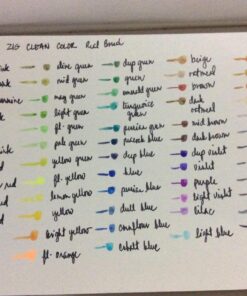 ZIG CLEAN COLOR Real Brush
ink
olive green
deep green
beige
ink
mid green
green
oatmeal
may green
emerald green
brown
light green
turquoise green
dark oatmeal
fl. green
persian green
mid brown
ink
pale green
peacock blue
dark brown
yellow green
deep blue
deep violet
red
fl. yellow
blue
violet
lemon yellow
persian blue
purple
yellow
dull blue
light violet
bright yellow
cornflower blue
lilac
fl. orange
cobalt blue
light blue